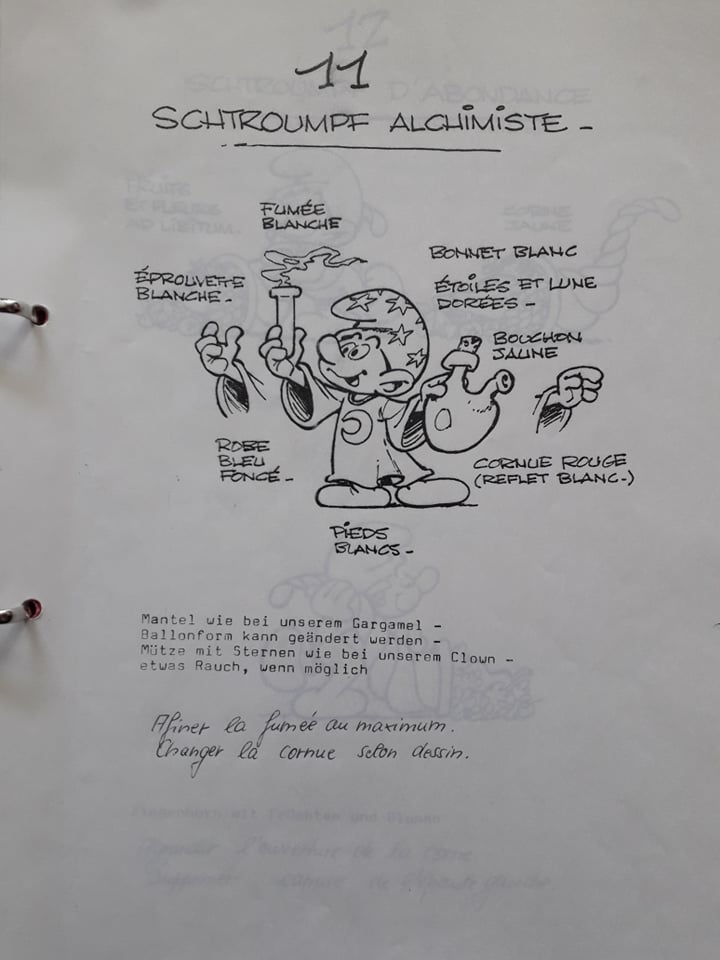 11
SCHTROUMPF ALCHIMISTE -
FUMÉE
BLANCHE
ÉPROUVETTE
BLANCHE -
BONNET BLANC
ÉTOILES ET LUNE
DORÉES -
BOUCHON
JAUNE
ROBE
BLEU
FONCÉ -
CORNUE ROUGE
(REFLET BLANC-)
PIEDS
BLANCS -
Mantel wie bei unserem Gargamel -
Ballonform kann geändert werden -
Mütze mit Sternen wie bei unserem Clown -
etwas Rauch, wenn möglich
Afiner la fumée au maximum.
Changer la cornue selon dessin.
12
D'ABONDANCE
FRUITS
ET FLEURS
AD LIBITUM.
CORNE
JAUNE